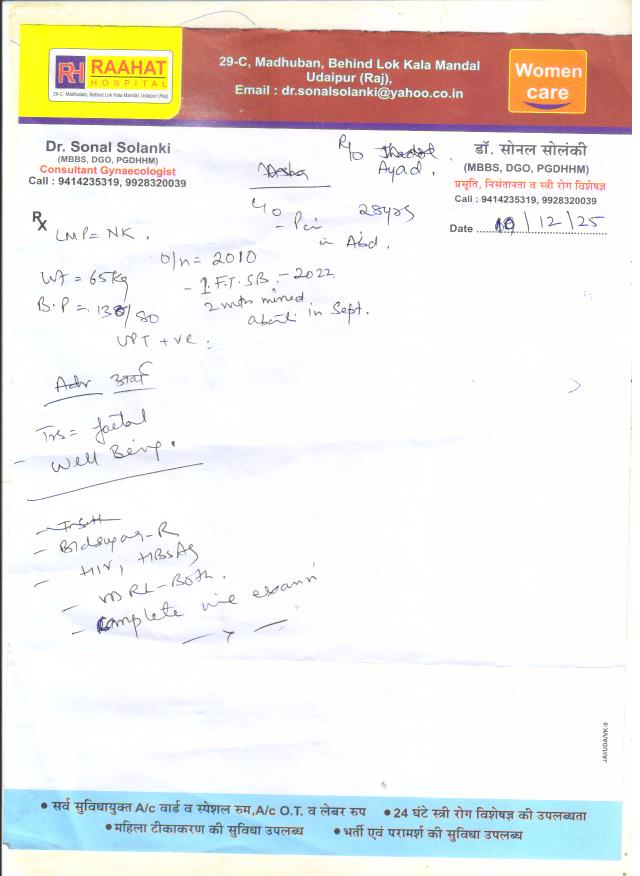 RH RAAHAT
HOSPITAL
29-C, Madhuban, Behind Lok Kala Mandal, Udaipur (Raj)
29-C, Madhuban, Behind Lok Kala Mandal
Udaipur (Raj),
Email : dr.sonalsolanki@yahoo.co.in
Women
care
Dr. Sonal Solanki
(MBBS, DGO, PGDHHM)
Consultant Gynaecologist
Call : 9414235319, 9928320039
R/o
Ayad.
डॉ. सोनल सोलंकी
(MBBS, DGO, PGDHHM)
प्रसूति, निसंतानता व स्त्री रोग विशेषज्ञ
Call : 9414235319, 9928320039
Date 10/12/25
28yrs
Rx
LMP = NK.
in Abd.
= 2010
Wt = 65kg
- 1. F.T. SB. - 2022
B.P = /80
2 mths missed
in Sept.
UPT + ve :
Adv
= foetal
- Well Being.
- HIV, HBsAg
- VDRL - Both.
- Complete
JAI/UDA/VK-9
• सर्व सुविधायुक्त A/c वार्ड व स्पेशल रुम, A/c O.T. व लेबर रुप • 24 घंटे स्त्री रोग विशेषज्ञ की उपलब्धता
• महिला टीकाकरण की सुविधा उपलब्ध • भर्ती एवं परामर्श की सुविधा उपलब्ध